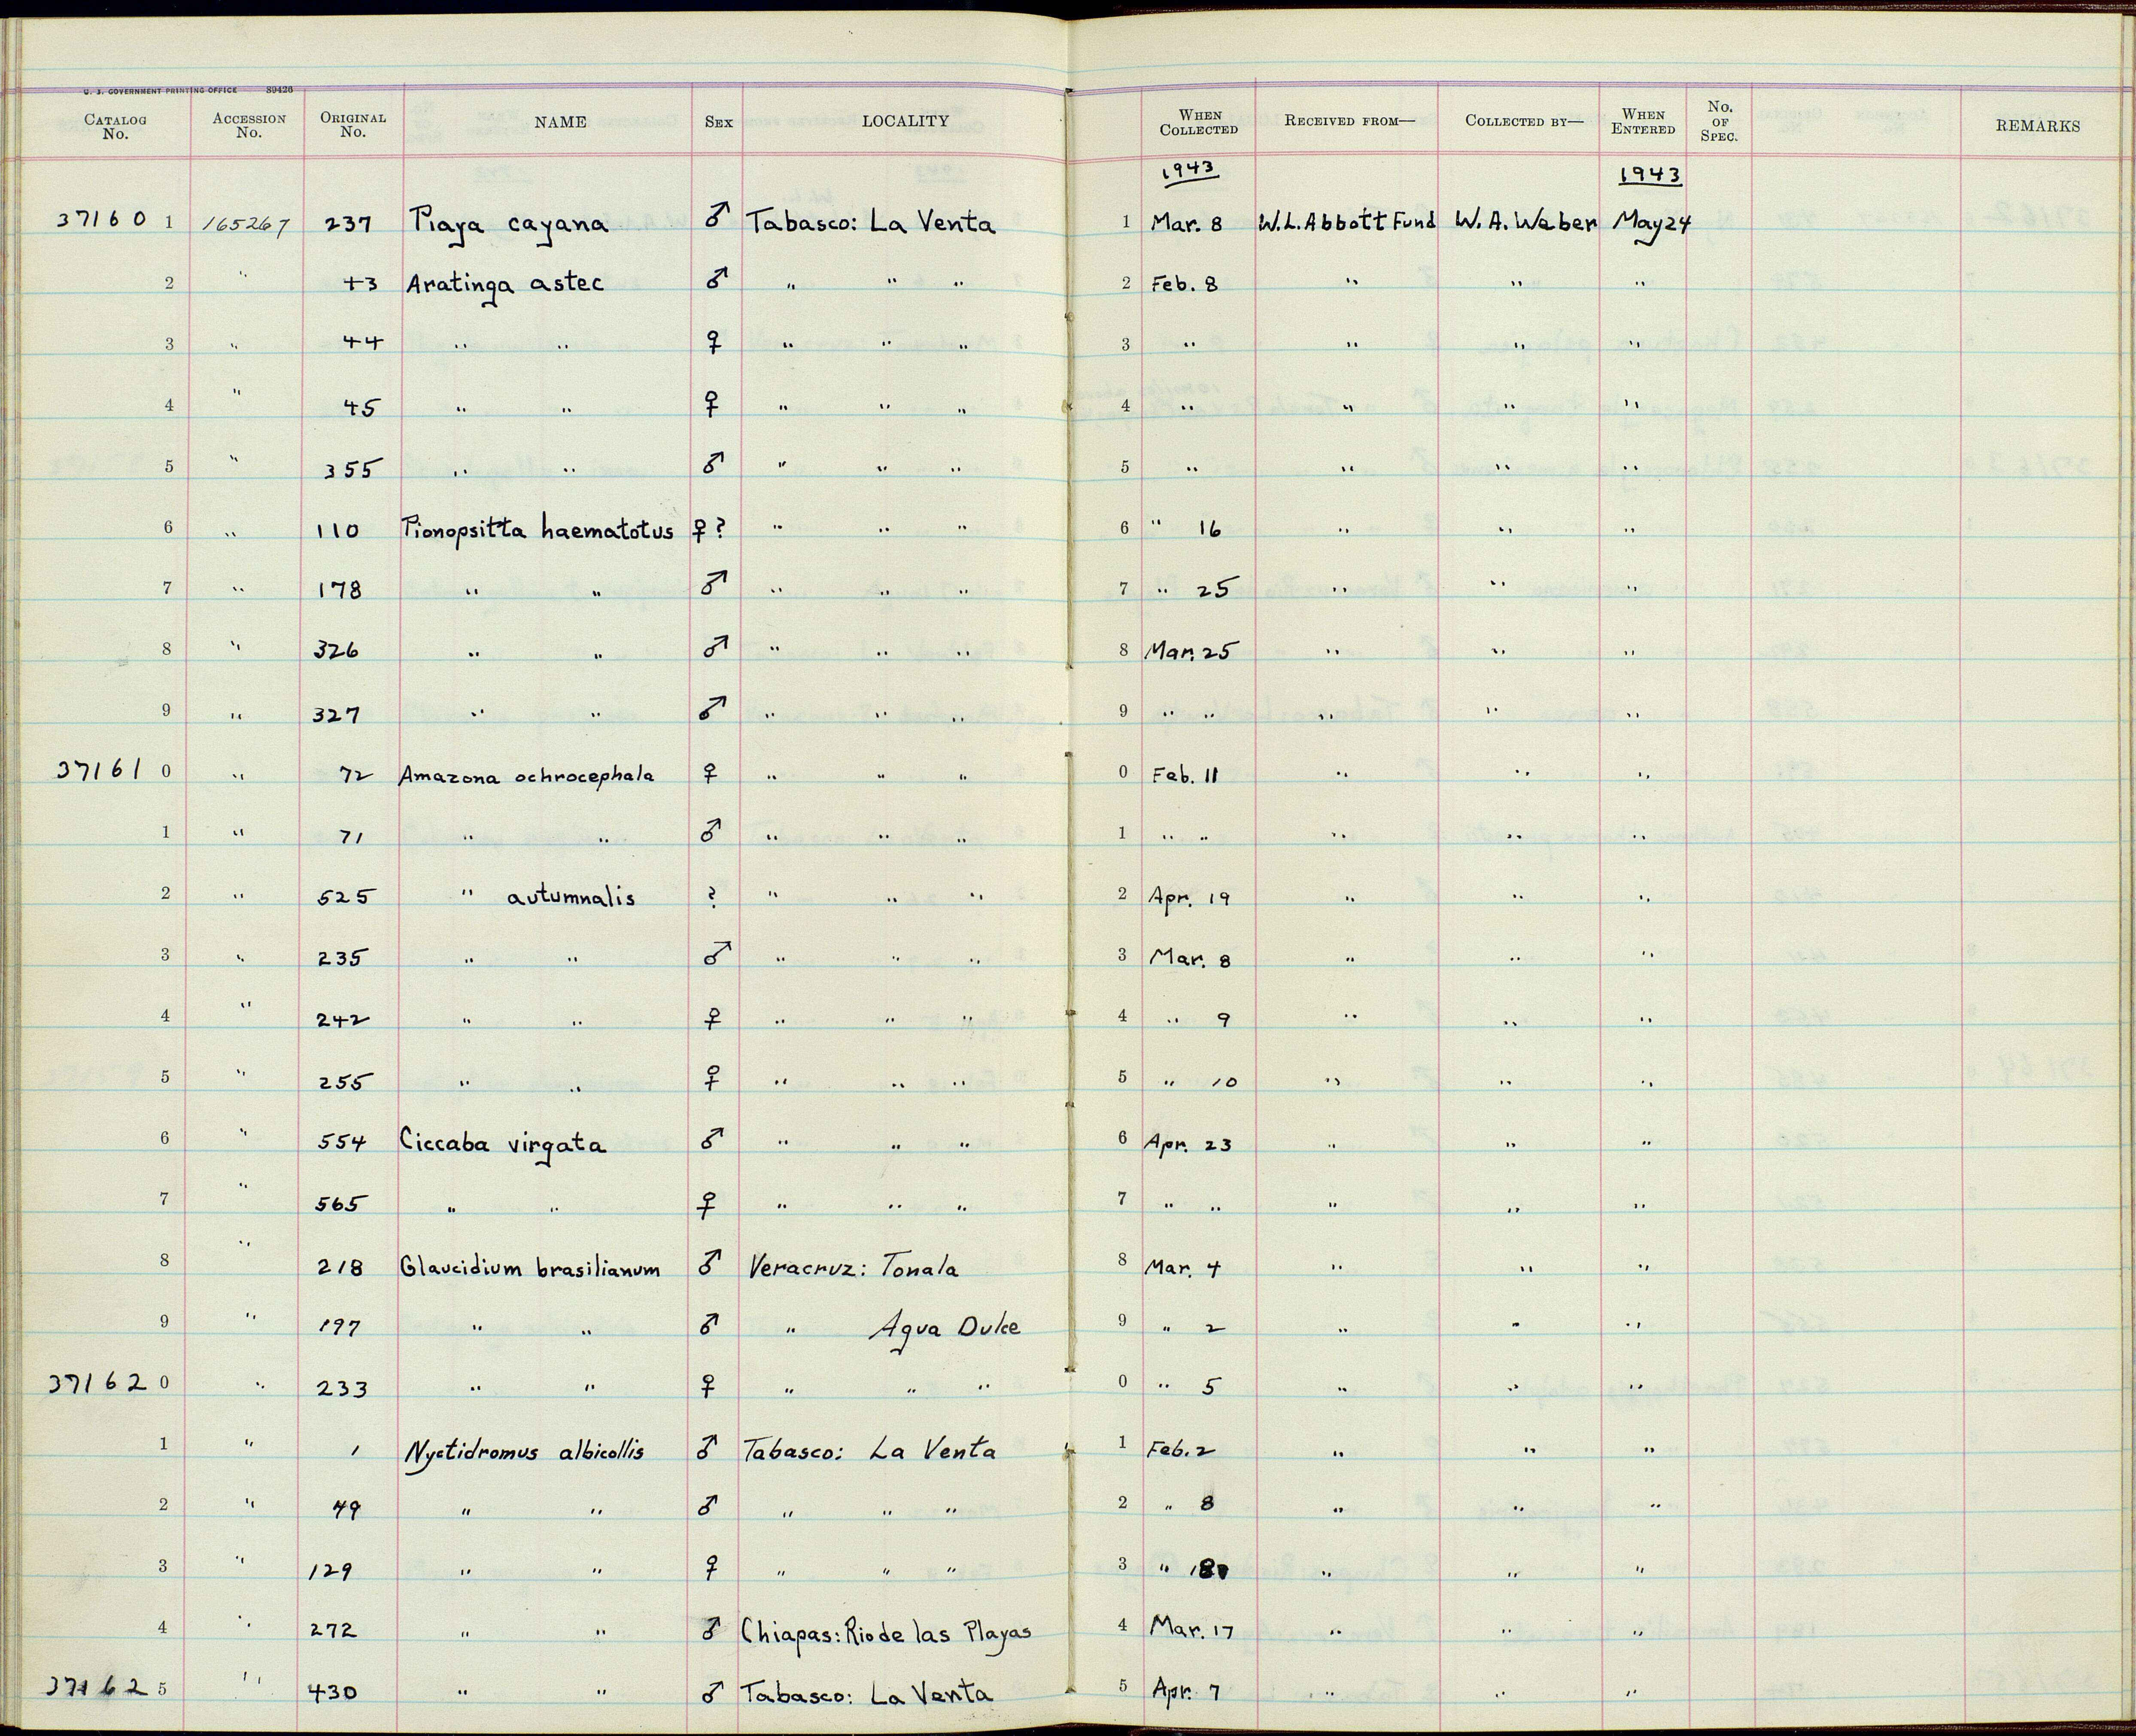 U. S. GOVERNMENT PRINTING OFFICE 89426
CATALOG No. ACCESSION No. ORIGINAL No. NAME SEX LOCALITY WHEN COLLECTED RECEIVED FROM— COLLECTED BY— WHEN ENTERED No. OF SPEC. REMARKS
1943 1943
37160 1 165267 237 Piaya cayana ♂ Tabasco: La Venta 1 Mar. 8 W.L. Abbott Fund W. A. Weber May 24
2 " 43 Aratinga astec ♂ " " " 2 Feb. 8 " " "
3 " 44 " " ♀ " " " 3 " " " "
4 " 45 " " ♀ " " " 4 " " " "
5 " 355 " " ♂ " " " 5 " " " "
6 " 110 Pionopsitta haematotus ♀? " " " 6 " 16 " " "
7 " 178 " " ♂ " " " 7 " 25 " " "
8 " 326 " " ♂ " " " 8 Mar. 25 " " "
9 " 327 " " ♂ " " " 9 " " " " "
37161 0 " 72 Amazona ochrocephala ♀ " " " 0 Feb. 11 " " "
1 " 71 " " ♂ " " " 1 " " " " "
2 " 525 " autumnalis ? " " " 2 Apr. 19 " " "
3 " 235 " " ♂ " " " 3 Mar. 8 " " "
4 " 242 " " ♀ " " " 4 " 9 " " "
5 " 255 " " ♀ " " " 5 " 10 " " "
6 " 554 Ciccaba virgata ♂ " " " 6 Apr. 23 " " "
7 " 565 " " ♀ " " " 7 " " " " "
8 " 218 Glaucidium brasilianum ♂ Veracruz: Tonala 8 Mar. 4 " " "
9 " 197 " " ♂ " Agua Dulce 9 " 2 " " "
37162 0 " 233 " " ♀ " " " 0 " 5 " " "
1 " 1 Nyctidromus albicollis ♂ Tabasco: La Venta 1 Feb. 2 " " "
2 " 49 " " ♂ " " " 2 " 8 " " "
3 " 129 " " ♀ " " " 3 " " " "
4 " 272 " " ♂ Chiapas: Rio de las Playas 4 Mar. 17 " " "
37162 5 " 430 " " ♂ Tabasco: La Venta 5 Apr. 7 " " "